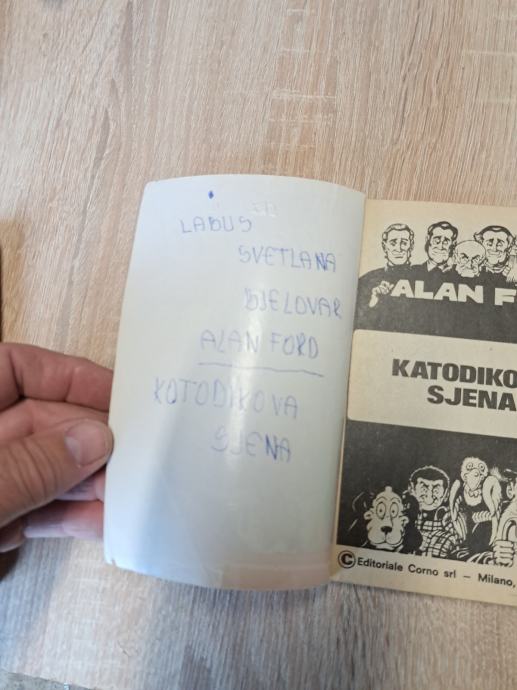 LABUS
SVETLANA
BJELOVAR
ALAN FORD
KOTODIKOVA
SJENA
ALAN F
KATODIKO
SJENA
© Editoriale Corno srl – Milano,